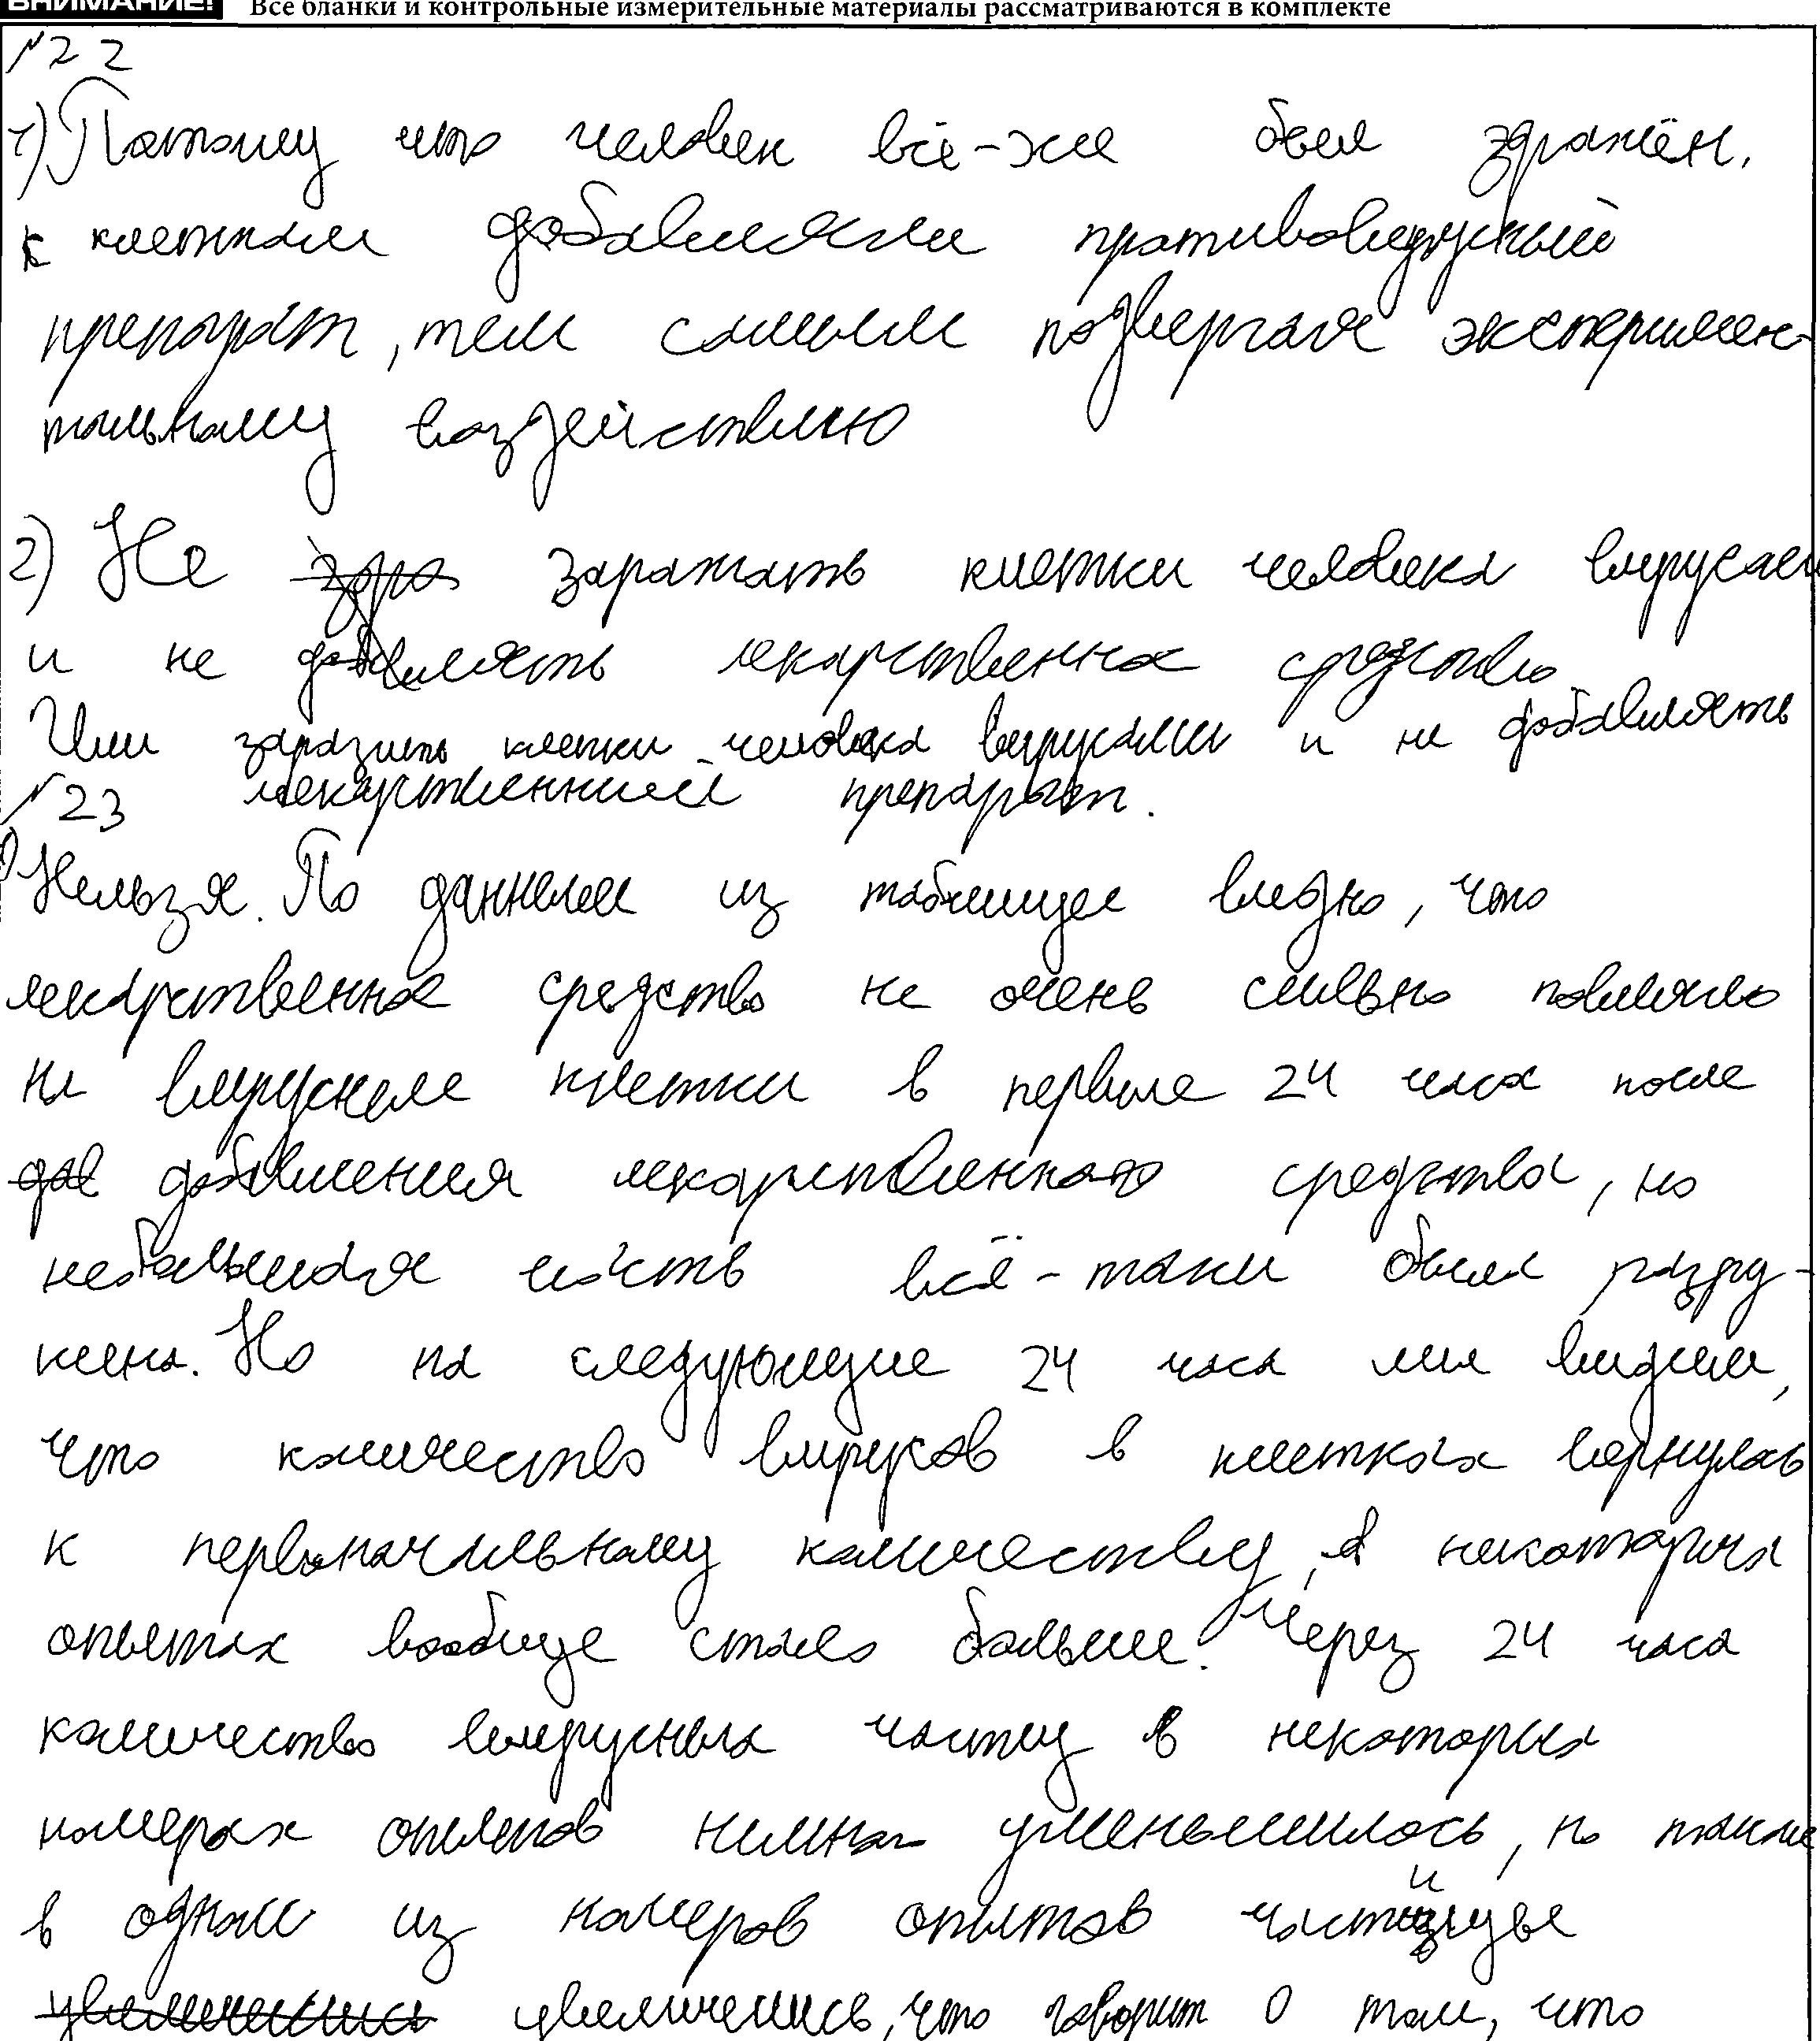 ВНИМАНИЕ! Все бланки и контрольные измерительные материалы рассматриваются в комплекте
№22
1) Потому что человек всё-же был зражён,
к клеткам добавляли противовирусный
препарат, тем самым подвергая эксперимен-
тальному воздействию
2) Не зара заражать клетки человека вирусами
и не добавлять лекарственное средство
Или заразить клетки человека вирусами и не добавлять
лекарственный препарат.
№23
1) Нельзя. По данным из таблицы видно, что
лекарственное средство не очень сильно повлияло
на вирусные клетки в первые 24 часа после
дов добавления лекарственного средства, но
небольшая часть всё-таки была разру-
шена. Но на следующие 24 часа мы видим,
что количество вирусов в клетках вернулось
к первоначальному количеству, в некоторых
опытах вообще стало больше. Через 24 часа
количество вирусных частиц в некоторых
номерах опытов немног уменьшилось, но также
в одном из номеров опытов частицы
увеличились увеличились, что говорит о том, что